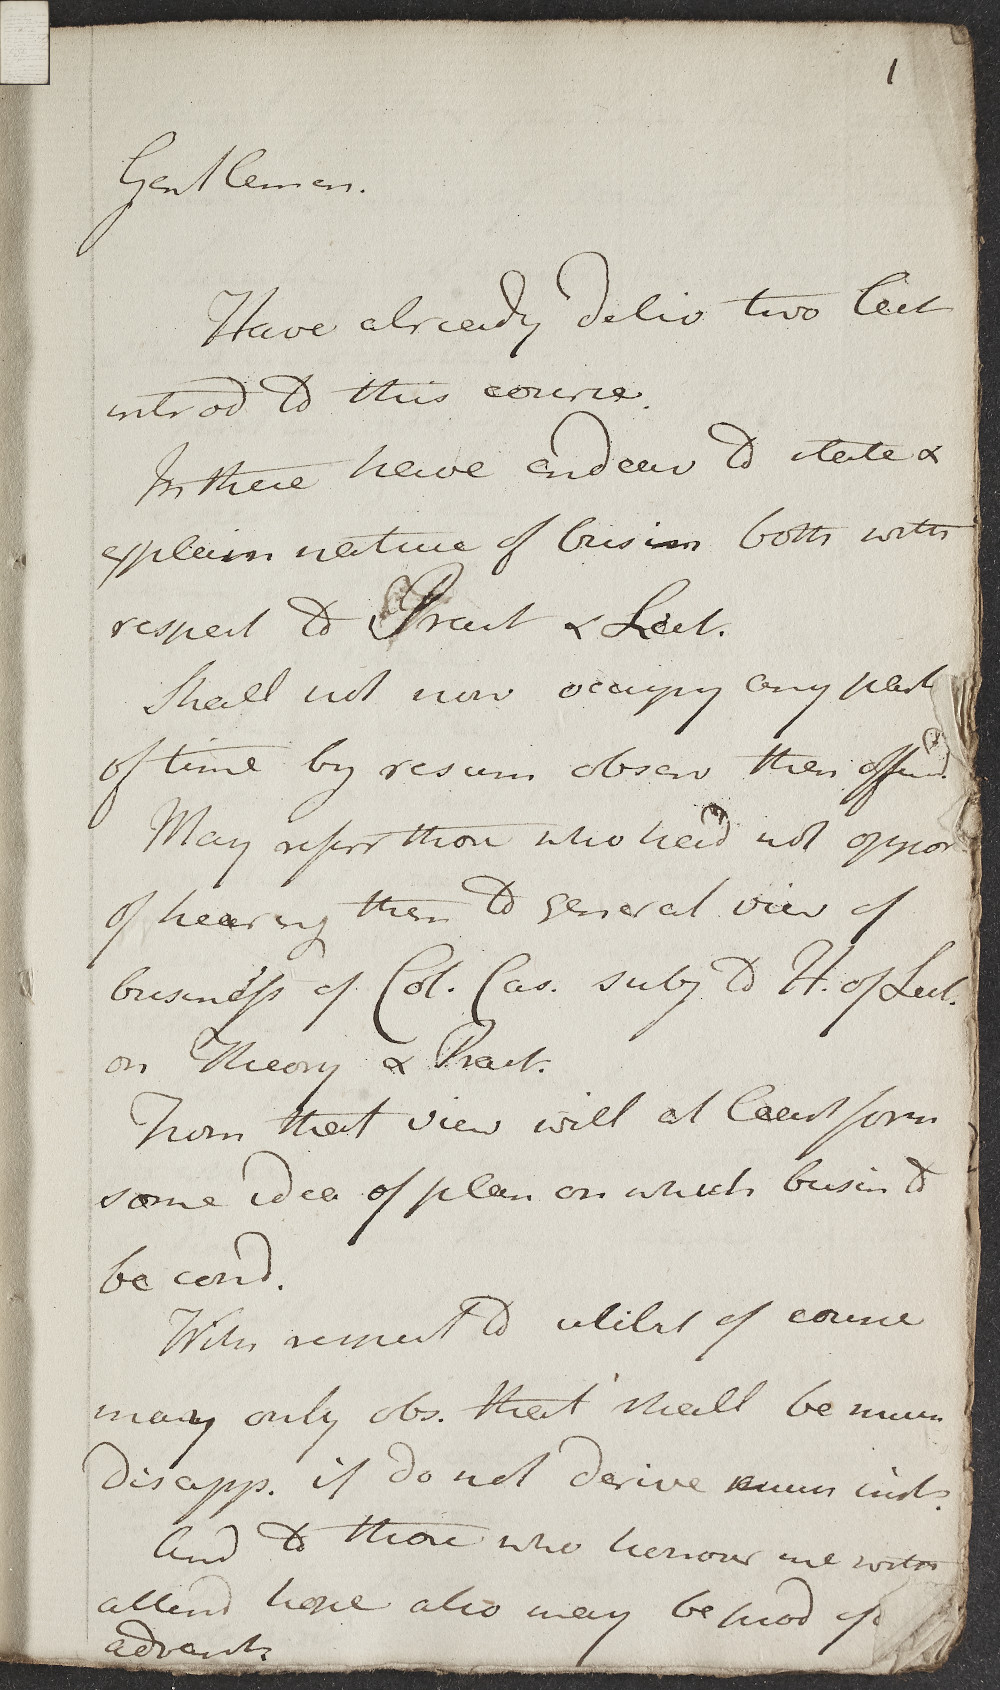 1
Gentlemen.
Have already deliv two lect
introd to this course.
In these have endeav to state &
explain nature of busin both with
respect to Pract & Lect.
Shall not now occupy any part
of time by resum observ then offered.
May referr those who had not oppor
of hearing them to general view of
business of Col. Cas. subj to H. of Lect.
on Theory & Pract.
From that view will at least form
some idea of plan on which busin to
be cond.
With respect to utilit of course
may only obs. that shall be
disapp. if do not derive inst.
And to those who honour me with
attend hope also may be prod of
advant.